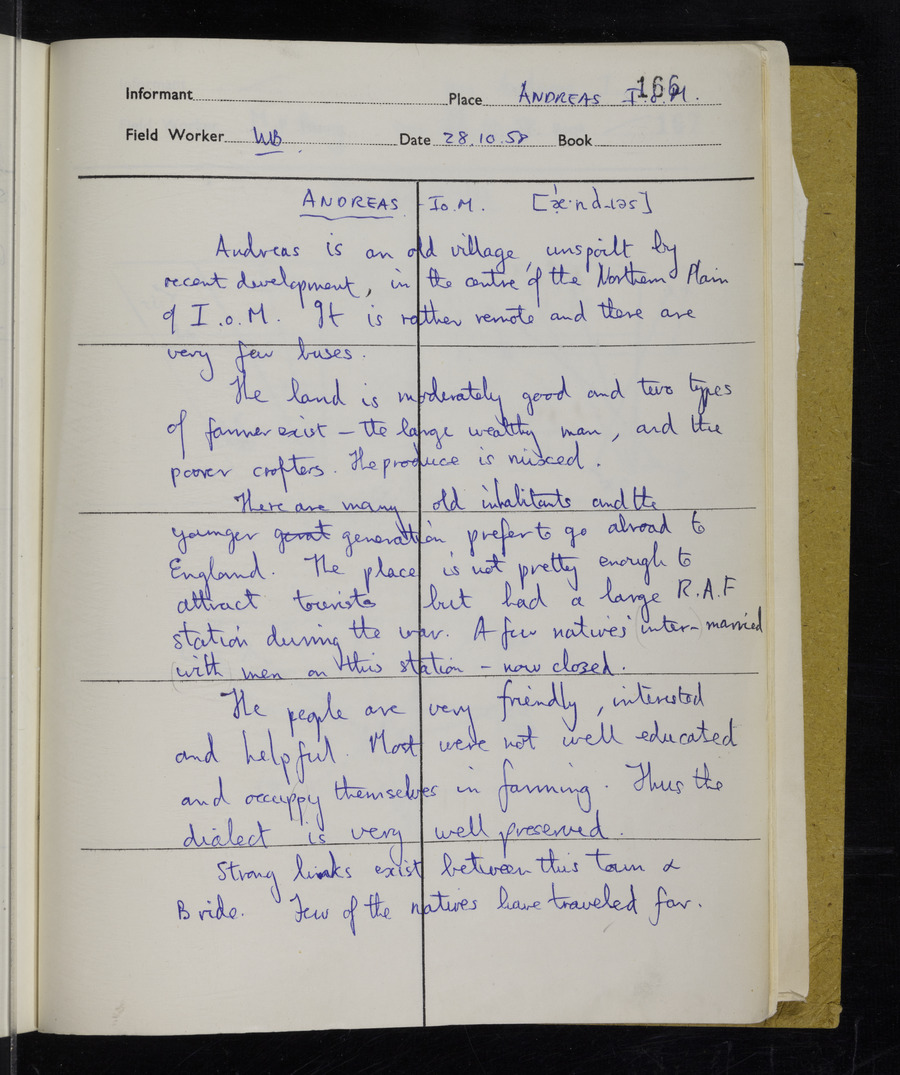 166
Informant Place ANDREAS I.o.M.
Field Worker WB Date 28.10.58 Book
ANDREAS I.o.M. [ˈæ·ndɹəs]
Andreas is an old village, unspoilt by
recent development, in the centre of the Northern Plain
of I.o.M. It is rather remote and there are
very few buses.
The land is moderately good and two types
of farmer exist – the large wealthy man, and the
poorer crofters. The produce is mixed.
There are many old inhabitants and the
younger generation prefer to go abroad to
England. The place is not pretty enough to
attract tourists but had a large R.A.F
station during the war. A few natives inter-married
with men on this station – now closed.
The people are very friendly, interested
and helpful. Most were not well educated
and occuppy themselves in farming. Thus the
dialect is very well preserved.
Strong links exist between this town &
Bride. Few of the natives have traveled far.